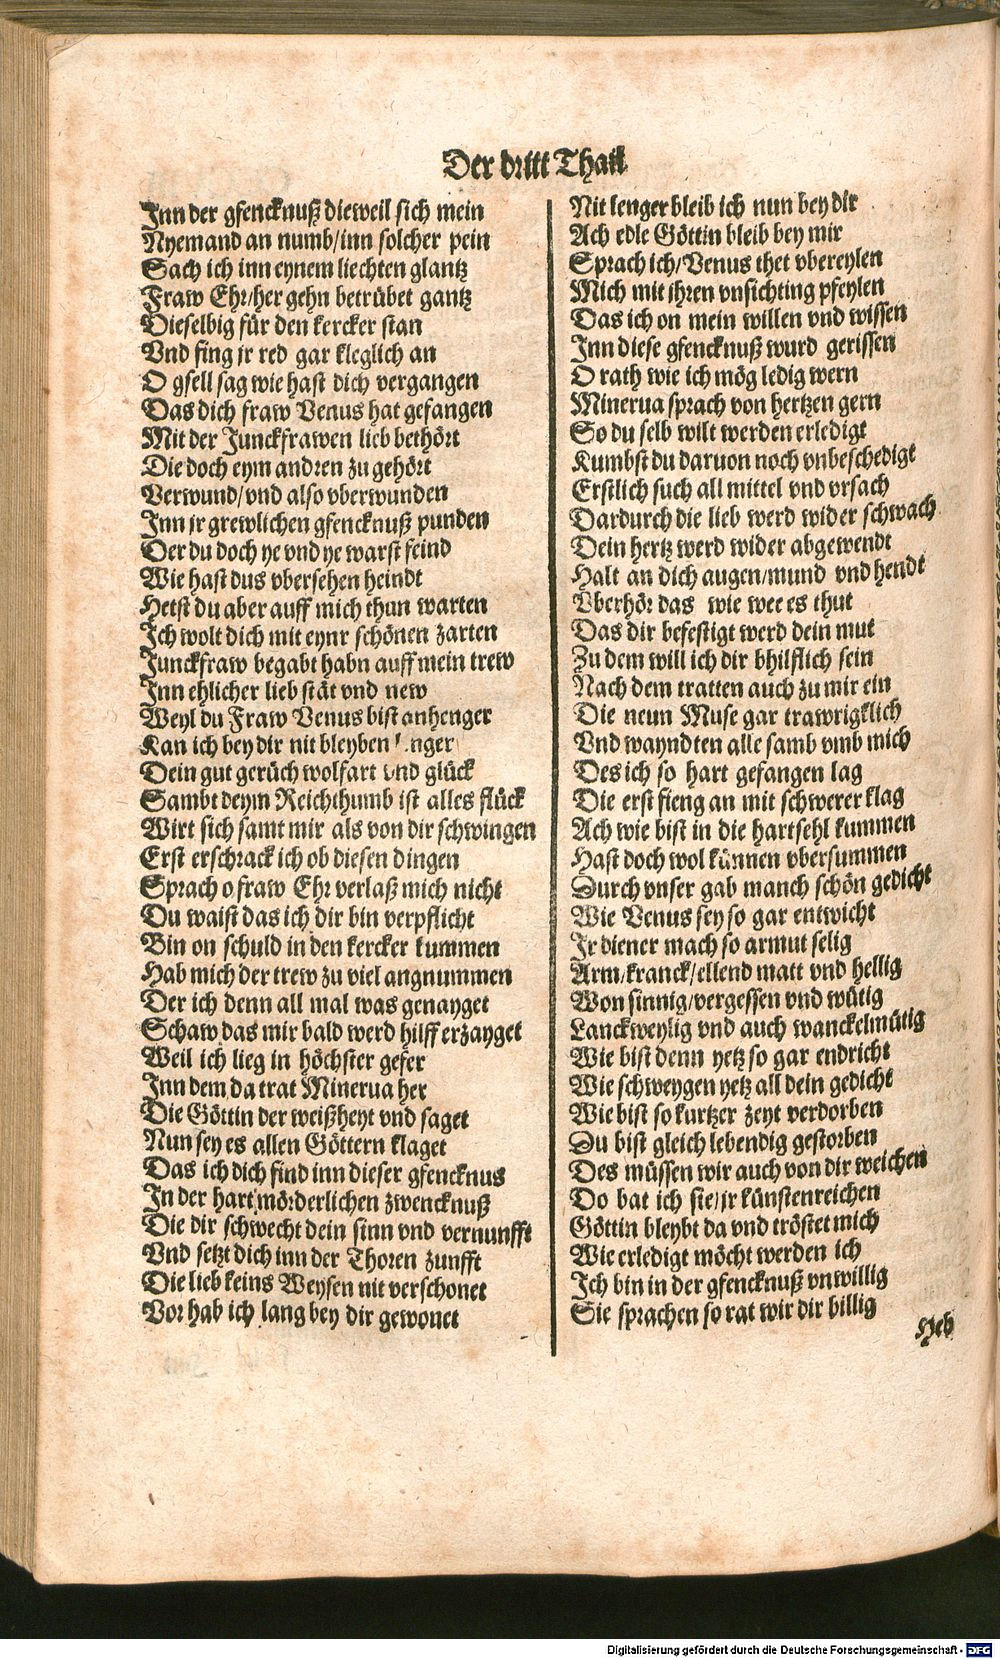 Der dritt Thail
Inn der gfencknuß dieweil sich mein
Nyemand an numb/inn solcher pein
Sach ich inn eynem liechten glantz
Fraw Ehr/her gehn betrübet gantz
Dieselbig für den kercker stan
Vnd fing jr red gar kleglich an
O gsell sag wie hast dich vergangen
Das dich fraw Venus hat gefangen
Mit der Junckfrawen lieb bethört
Die doch eym andren zu gehört
Verwund/vnd also vberwunden
Inn jr grewlichen gfencknuß punden
Der du doch ye vnd ye warst feind
Wie hast dus vbersehen heindt
Hetst du aber auff mich thun warten
Ich wolt dich mit eynr schönen zarten
Junckfraw begabt habn auff mein trew
Inn ehlicher lieb stät vnd new
Weyl du Fraw Venus bist anhenger
Kan ich bey dir nit bleyben nger
Dein gut gerüch wolfart vnd glück
Sambt deym Reichthumb ist alles flück
Wirt sich samt mir als von dir schwingen
Erst erschrack ich ob diesen dingen
Sprach o fraw Ehr verlaß mich nicht
Du waist das ich dir bin verpflicht
Bin on schuld in den kercker kummen
Hab mich der trew zu viel angnummen
Der ich denn all mal was genayget
Schaw das mir bald werd hilff erzayget
Weil ich lieg in höchster gefer
Inn dem da trat Minerua her
Die Göttin der weißheyt vnd saget
Nun sey es allen Göttern klaget
Das ich dich find inn dieser gfencknus
In der hart mörderlichen zwencknuß
Die dir schwecht dein sinn vnd vernunfft
Vnd setzt dich inn der Thoren zunfft
Die lieb keins Weysen nit verschonet
Vor hab ich lang bey dir gewonet
Nit lenger bleib ich nun bey dir
Ach edle Göttin bleib bey mir
Sprach ich/Venus thet vbereylen
Mich mit ihren vnsichting pfeylen
Das ich on mein willen vnd wissen
Inn diese gfencknuß wurd gerissen
O rath wie ich mög ledig wern
Minerua sprach von hertzen gern
So du selb wilt werden erledigt
Kumbst du daruon noch vnbeschedigt
Erstlich such all mittel vnd vrsach
Dardurch die lieb werd wider schwach
Dein hertz werd wider abgewendt
Halt an dich augen/mund vnd hendt
Vberhör das wie wee es thut
Das dir befestigt werd dein mut
Zu dem will ich dir bhilflich sein
Nach dem tratten auch zu mir ein
Die neun Muse gar trawrigklich
Vnd waynd ten alle samb vmb mich
Des ich so hart gefangen lag
Die erst fieng an mit schwerer klag
Ach wie bist in die hartsehl kummen
Hast doch wol künnen vbersummen
Durch vnser gab manch schön gedicht
Wie Venus sey so gar entwicht
Ir diener mach so armut selig
Arm/kranck/ellend matt vnd hellig
Won sinnig/vergessen vnd wütig
Lanckweylig vnd auch wanckelmütig
Wie bist denn yetz so gar endricht
Wie schweygen yetz all dein gedicht
Wie bist so kurtzer zeyt verdorben
Du bist gleich lebendig gestorben
Des müssen wir auch von dir weichen
Do bat ich sie/jr künstenreichen
Göttin bleybt da vnd tröstet mich
Wie erledigt möcht werden ich
Ich bin in der gfencknuß vnwillig
Sie sprachen so rat wir dir billig
Digitalisierung gefördert durch die Deutsche Forschungsgemeinschaft - DFG